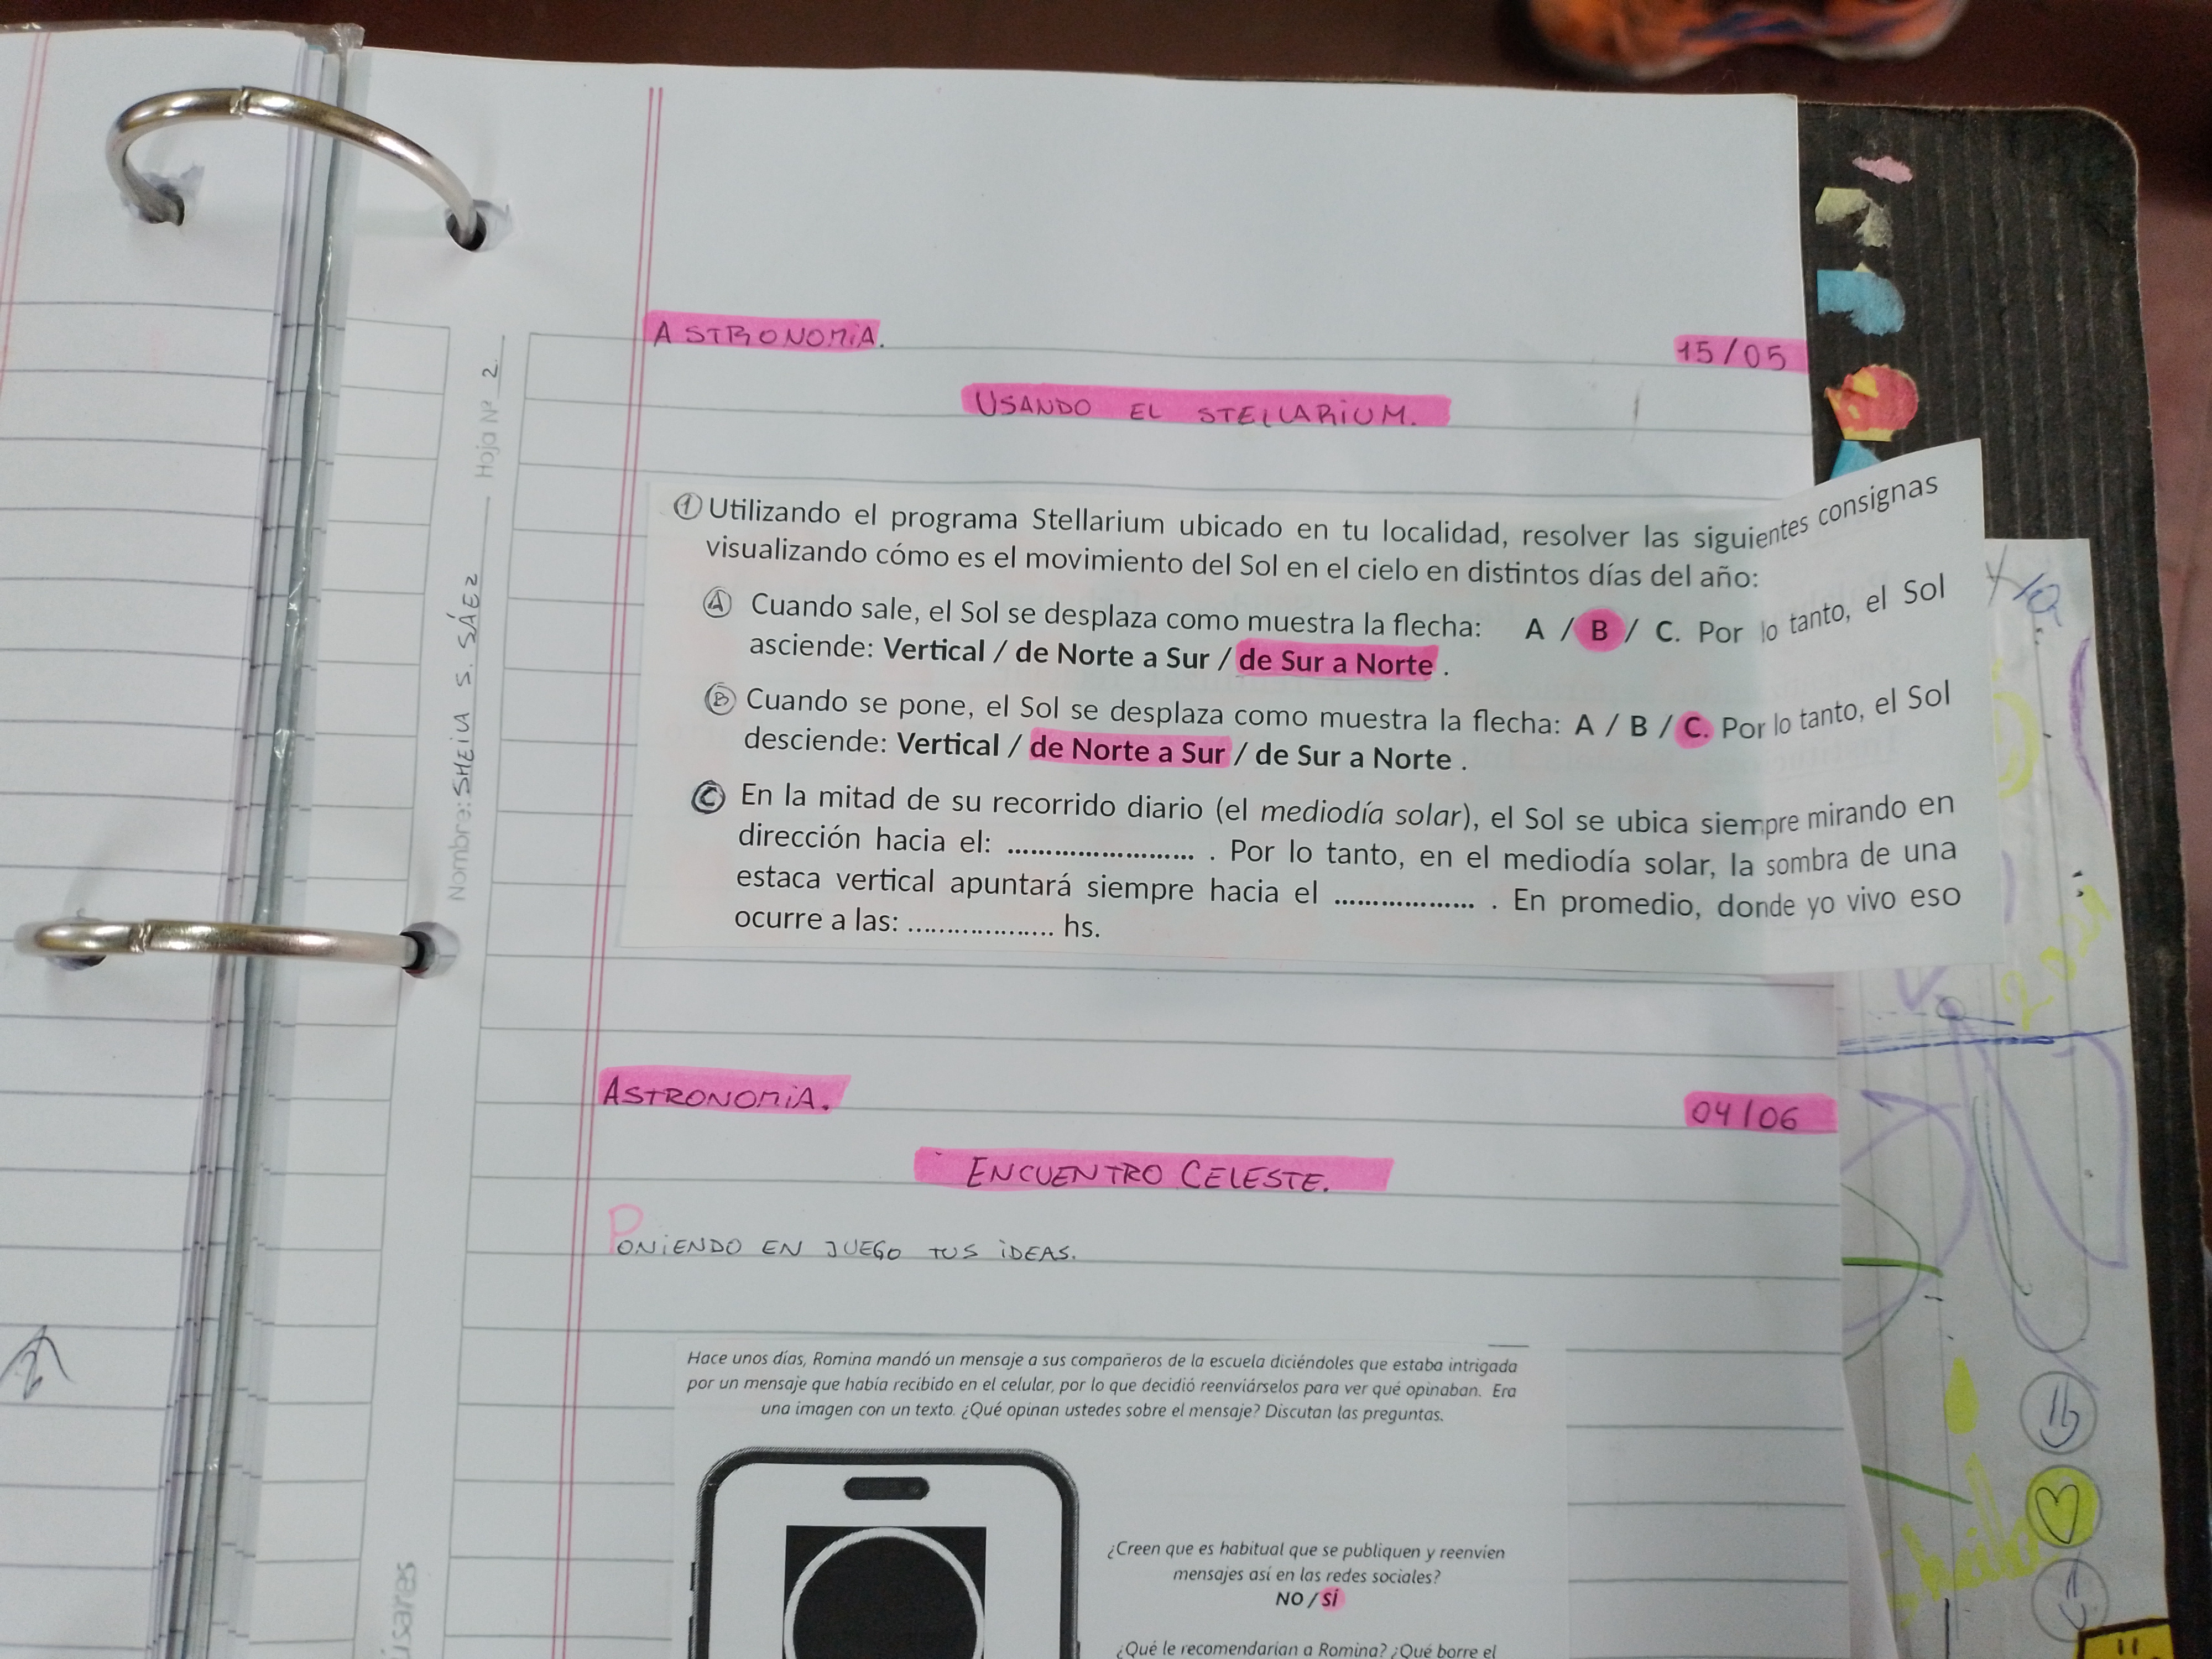 ASTRONOMIA.
15/05
USANDO EL STELLARIUM.
Nombre: SHEILA S. SÁEZ Hoja Nº 2
1 Utilizando el programa Stellarium ubicado en tu localidad, resolver las siguientes consignas
visualizando cómo es el movimiento del Sol en el cielo en distintos días del año:
A Cuando sale, el Sol se desplaza como muestra la flecha: A / B / C. Por lo tanto, el Sol
asciende: Vertical / de Norte a Sur / de Sur a Norte .
B Cuando se pone, el Sol se desplaza como muestra la flecha: A / B / C. Por lo tanto, el Sol
desciende: Vertical / de Norte a Sur / de Sur a Norte .
C En la mitad de su recorrido diario (el mediodía solar), el Sol se ubica siempre mirando en
dirección hacia el: ......................... . Por lo tanto, en el mediodía solar, la sombra de una
estaca vertical apuntará siempre hacia el ................... . En promedio, donde yo vivo eso
ocurre a las: .................... hs.
ASTRONOMIA.
04/06
ENCUENTRO CELESTE.
PONIENDO EN JUEGO TUS IDEAS.
Hace unos días, Romina mandó un mensaje a sus compañeros de la escuela diciéndoles que estaba intrigada
por un mensaje que había recibido en el celular, por lo que decidió reenviárselos para ver qué opinaban. Era
una imagen con un texto. ¿Qué opinan ustedes sobre el mensaje? Discutan las preguntas.
¿Creen que es habitual que se publiquen y reenvíen
mensajes así en las redes sociales?
NO / SÍ
¿Qué le recomendarían a Romina? ¿Qué borre el